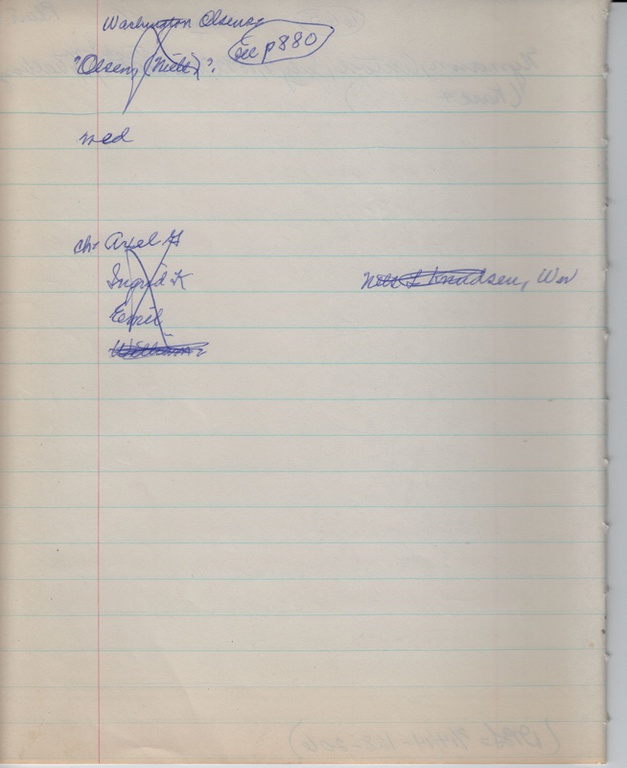 Washington Olsens
"Olsen, (Niels)". See p880
med
ch. Axel H
Ingrid K
Emil
William
Knudsen, Wev